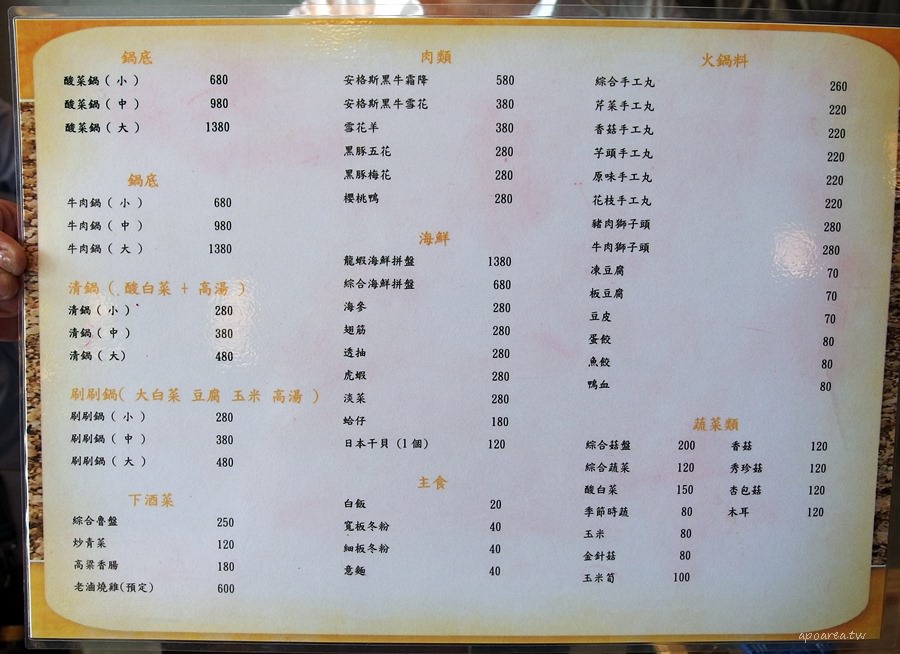 鍋底
酸菜鍋 ( 小 ) 680
酸菜鍋 ( 中 ) 980
酸菜鍋 ( 大 ) 1380
鍋底
牛肉鍋 ( 小 ) 680
牛肉鍋 ( 中 ) 980
牛肉鍋 ( 大 ) 1380
清鍋 ( 酸白菜 + 高湯 )
清鍋 ( 小 ) 280
清鍋 ( 中 ) 380
清鍋 ( 大) 480
刷刷鍋( 大白菜 豆腐 玉米 高湯 )
刷刷鍋 ( 小 ) 280
刷刷鍋 ( 中 ) 380
刷刷鍋 ( 大 ) 480
下酒菜
綜合魯盤 250
炒青菜 120
高粱香腸 180
老滷燒雞(預定) 600
肉類
安格斯黑牛霜降 580
安格斯黑牛雪花 380
雪花羊 380
黑豚五花 280
黑豚梅花 280
櫻桃鴨 280
海鮮
龍蝦海鮮拼盤 1380
綜合海鮮拼盤 680
海參 280
翅筋 280
透抽 280
虎蝦 280
淡菜 280
蛤仔 180
日本干貝 (1個) 120
主食
白飯 20
寬板冬粉 40
細板冬粉 40
意麵 40
火鍋料
綜合手工丸 260
芹菜手工丸 220
香菇手工丸 220
芋頭手工丸 220
原味手工丸 220
花枝手工丸 220
豬肉獅子頭 280
牛肉獅子頭 280
凍豆腐 70
板豆腐 70
豆皮 70
蛋餃 80
魚餃 80
鴨血 80
蔬菜類
綜合菇盤 200 香菇 120
綜合蔬菜 120 秀珍菇 120
酸白菜 150 杏包菇 120
季節時蔬 80 木耳 120
玉米 80
金針菇 80
玉米筍 100
apoarea.tw